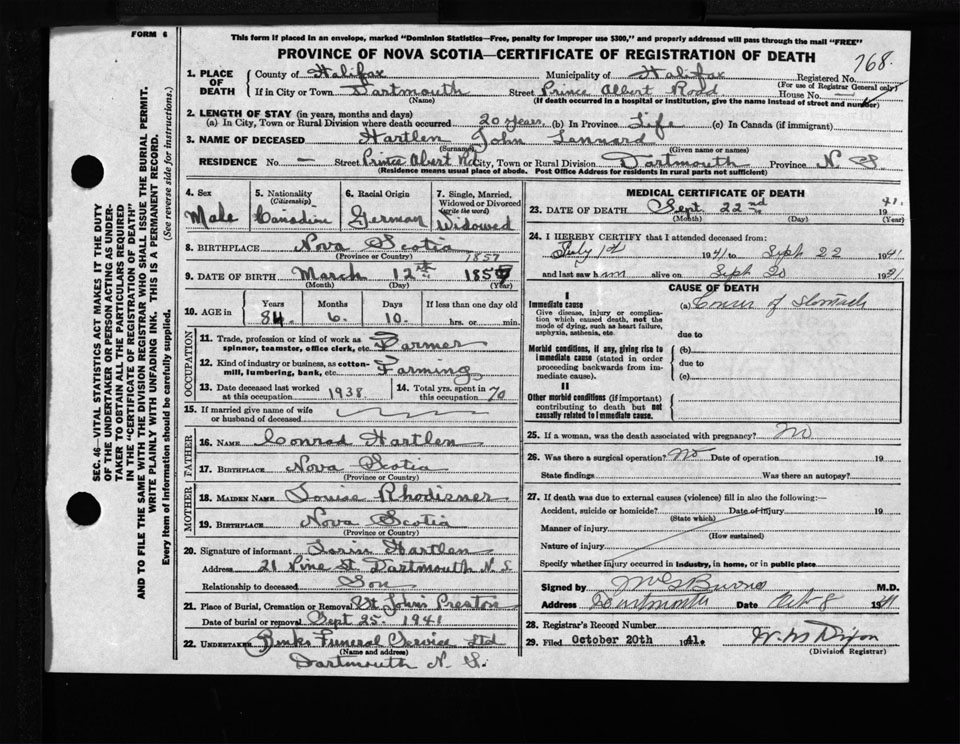 FORM 6
This form if placed in an envelope, marked "Dominion Statistics—Free, penalty for improper use $300," and properly addressed will pass through the mail "FREE"
PROVINCE OF NOVA SCOTIA—CERTIFICATE OF REGISTRATION OF DEATH
768.
1. PLACE OF DEATH
County of Halifax Municipality of Halifax Registered No.
(For use of Registrar General only)
If in City or Town Dartmouth Street Prince Albert Road House No. —
(Name) (If death occurred in a hospital or institution, give the name instead of street and number)
2. LENGTH OF STAY (in years, months and days)
(a) In City, Town or Rural Division where death occurred 20 years. (b) In Province Life (c) In Canada (if immigrant)
3. NAME OF DECEASED Hartlen John Lennard
(Surname) (Given name or names)
RESIDENCE No. — Street Prince Abert Rd City, Town or Rural Division Dartmouth Province N S
(Residence means usual place of abode. Post Office Address for residents in rural parts not sufficient)
4. Sex Male
5. Nationality (Citizenship) Canadian
6. Racial Origin German
7. Single, Married, Widowed or Divorced (write the word) Widowed
8. BIRTHPLACE Nova Scotia
(Province or Country)
1857
9. DATE OF BIRTH March 12th 1857
(Month) (Day) (Year)
10. AGE in Years 84. Months 6. Days 10. If less than one day old hrs. or min.
OCCUPATION
11. Trade, profession or kind of work as spinner, teamster, office clerk, etc. Farmer
12. Kind of industry or business, as cotton-mill, lumbering, bank, etc. Farming
13. Date deceased last worked at this occupation 1938.
14. Total yrs. spent in this occupation 70
15. If married give name of wife or husband of deceased
FATHER
16. NAME Conrad Hartlen
17. BIRTHPLACE Nova Scotia
(Province or Country)
MOTHER
18. MAIDEN NAME Louise Rhodizner
19. BIRTHPLACE Nova Scotia
(Province or Country)
20. Signature of informant Hartlen
Address 21 Pine St Dartmouth N.S
Relationship to deceased Son
21. Place of Burial, Cremation or Removal St John's Preston
Date of burial or removal Sept 25. 1941
22. UNDERTAKER Funeral Service Ltd
(Name and address)
Dartmouth N. S.
MEDICAL CERTIFICATE OF DEATH
23. DATE OF DEATH Sept 22nd 1941.
(Month) (Day) (Year)
24. I HEREBY CERTIFY that I attended deceased from:
July 1st 1941 to Sept 22 1941
and last saw him alive on Sept 20 1941
CAUSE OF DEATH
I
Immediate cause
Give disease, injury or complication which caused death, not the mode of dying, such as heart failure, asphyxia, asthenia, etc.
(a) Cancer of Stomach
due to
Morbid conditions, if any, giving rise to immediate cause (stated in order proceeding backwards from immediate cause).
(b)
due to
(c)
II
Other morbid conditions (if important) contributing to death but not causally related to immediate cause.
25. If a woman, was the death associated with pregnancy? No
26. Was there a surgical operation? No Date of operation 19
State findings Was there an autopsy?
27. If death was due to external causes (violence) fill in also the following:—
Accident, suicide or homicide? Date of injury 19
(State which)
Manner of injury
(How sustained)
Nature of injury
Specify whether injury occurred in industry, in home, or in public place
Signed by M.D.
Address Dartmouth Date Oct 8 1941
28. Registrar's Record Number
29. Filed October 20th 1941.
W. M Dixon
(Division Registrar)
SEC. 46—VITAL STATISTICS ACT MAKES IT THE DUTY
OF THE UNDERTAKER OR PERSON ACTING AS UNDER-
TAKER TO OBTAIN ALL THE PARTICULARS REQUIRED
IN THE "CERTIFICATE OF REGISTRATION OF DEATH"
AND TO FILE THE SAME WITH THE DIVISION REGISTRAR WHO SHALL ISSUE THE BURIAL PERMIT.
WRITE PLAINLY WITH UNFADING INK. THIS IS A PERMANENT RECORD.
Every item of information should be carefully supplied. (See reverse side for instructions.)